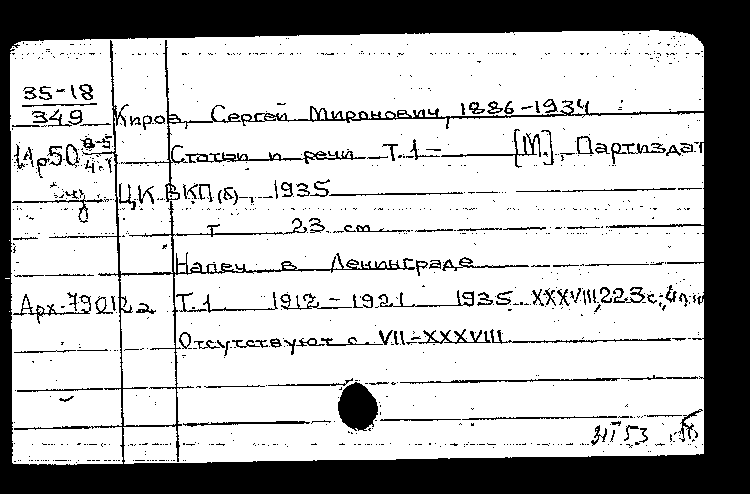 35-18
349 Киров, Сергей Миронович, 1886-1934
Ир50 8-5/4.1 Статьи и речи Т.1- [М.], Партиздат
ЦК ВКП(б), 1935
т 23 см.
Напеч. в Ленинграде
Арх-79012а Т.1 1912-1921 1935. XXXVIII, 223 с.; 4 л.
Отсутствуют с. VII-XXXVIII
53